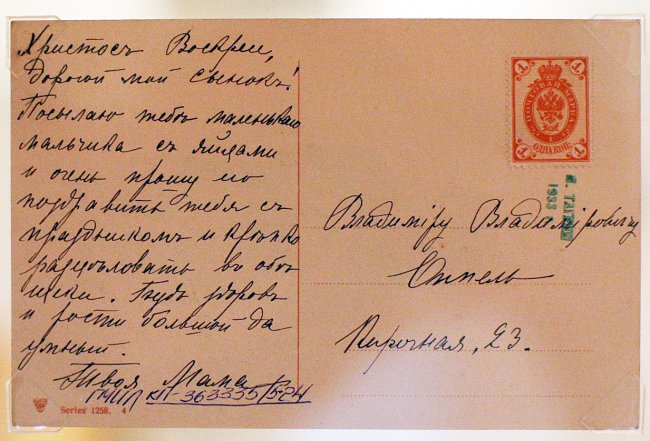 Христосъ Воскресе,
дорогой мой сынокъ!
Посылаю тебѣ маленькаго
мальчика съ яйцами
и очень прошу его
поздравить тебя съ
праздникомъ и крѣпко
расцѣловать въ обѣ
щеки. Будь здоровъ
и рости большой да
умный.
Твоя Мама
КП-363555/5-24
Series 1258. 4
1 1
ПОЧТОВАЯ МАРКА
1 ОДНА КОП. 1
1933
Владиміру Владиміровичу
Кирочная, 23.